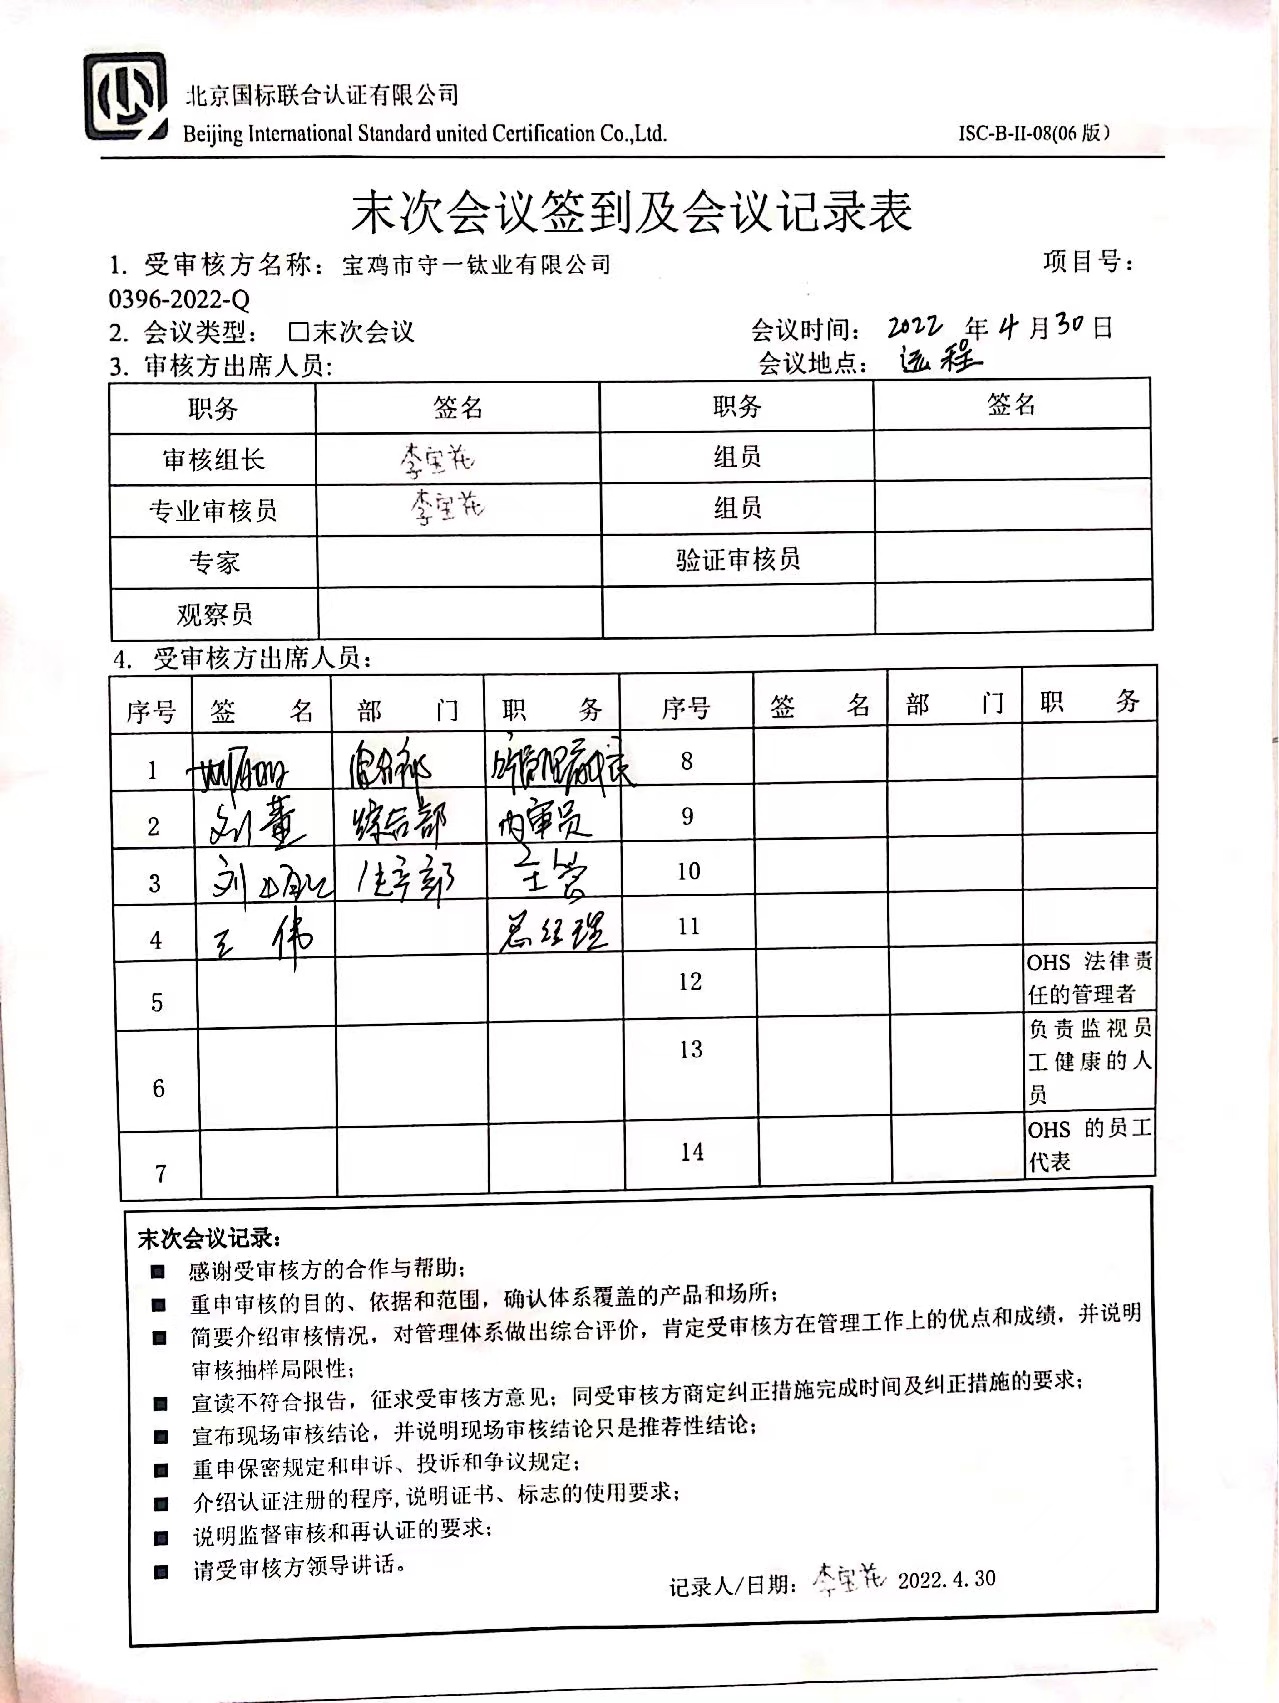 北京国标联合认证有限公司
Beijing International Standard united Certification Co.,Ltd.
ISC-B-II-08(06 版）
末次会议签到及会议记录表
1. 受审核方名称：宝鸡市守一钛业有限公司 项目号：
0396-2022-Q
2. 会议类型： □末次会议 会议时间： 2022 年 4 月 30 日
3. 审核方出席人员: 会议地点： 远程
职务 签名 职务 签名
审核组长 李宝花 组员
专业审核员 李宝花 组员
专家 验证审核员
观察员
4. 受审核方出席人员：
序号 签 名 部 门 职 务 序号 签 名 部 门 职 务
1 8
2 刘董 综合部 内审员 9
3 刘 生产部 主管 10
4 王伟 总经理 11
5 12 OHS 法律责
任的管理者
6 13 负责监视员
工健康的人
员
7 14 OHS 的员工
代表
末次会议记录：
■ 感谢受审核方的合作与帮助；
■ 重申审核的目的、依据和范围，确认体系覆盖的产品和场所；
■ 简要介绍审核情况，对管理体系做出综合评价，肯定受审核方在管理工作上的优点和成绩，并说明
审核抽样局限性；
■ 宣读不符合报告，征求受审核方意见；同受审核方商定纠正措施完成时间及纠正措施的要求；
■ 宣布现场审核结论，并说明现场审核结论只是推荐性结论；
■ 重申保密规定和申诉、投诉和争议规定；
■ 介绍认证注册的程序,说明证书、标志的使用要求；
■ 说明监督审核和再认证的要求；
■ 请受审核方领导讲话。
记录人/日期：李宝花 2022.4.30